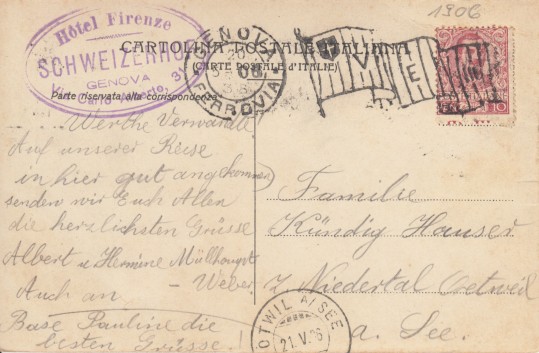 1906
Hôtel Firenze
SCHWEIZERHOF
GENOVA
Via Carlo Alberto, 3
GENOVA
06
FERROVIA
10
CARTOLINA POSTALE ITALIANA
(CARTE POSTALE D'ITALIE)
Parte riservata alla corrispondenza
Werthe Verwandte
Auf unserer Reise
in hier gut angekommen
senden wir Euch Allen
die herzlichsten Grüsse
Albert & Hermine Müllhaupt
- Weber
Auch an
Base Pauline die
besten Grüsse!
Familie
Kündig Hauser
z. Niedertal Oetweil
a. See.
OTWIL A/SEE
21.V.06